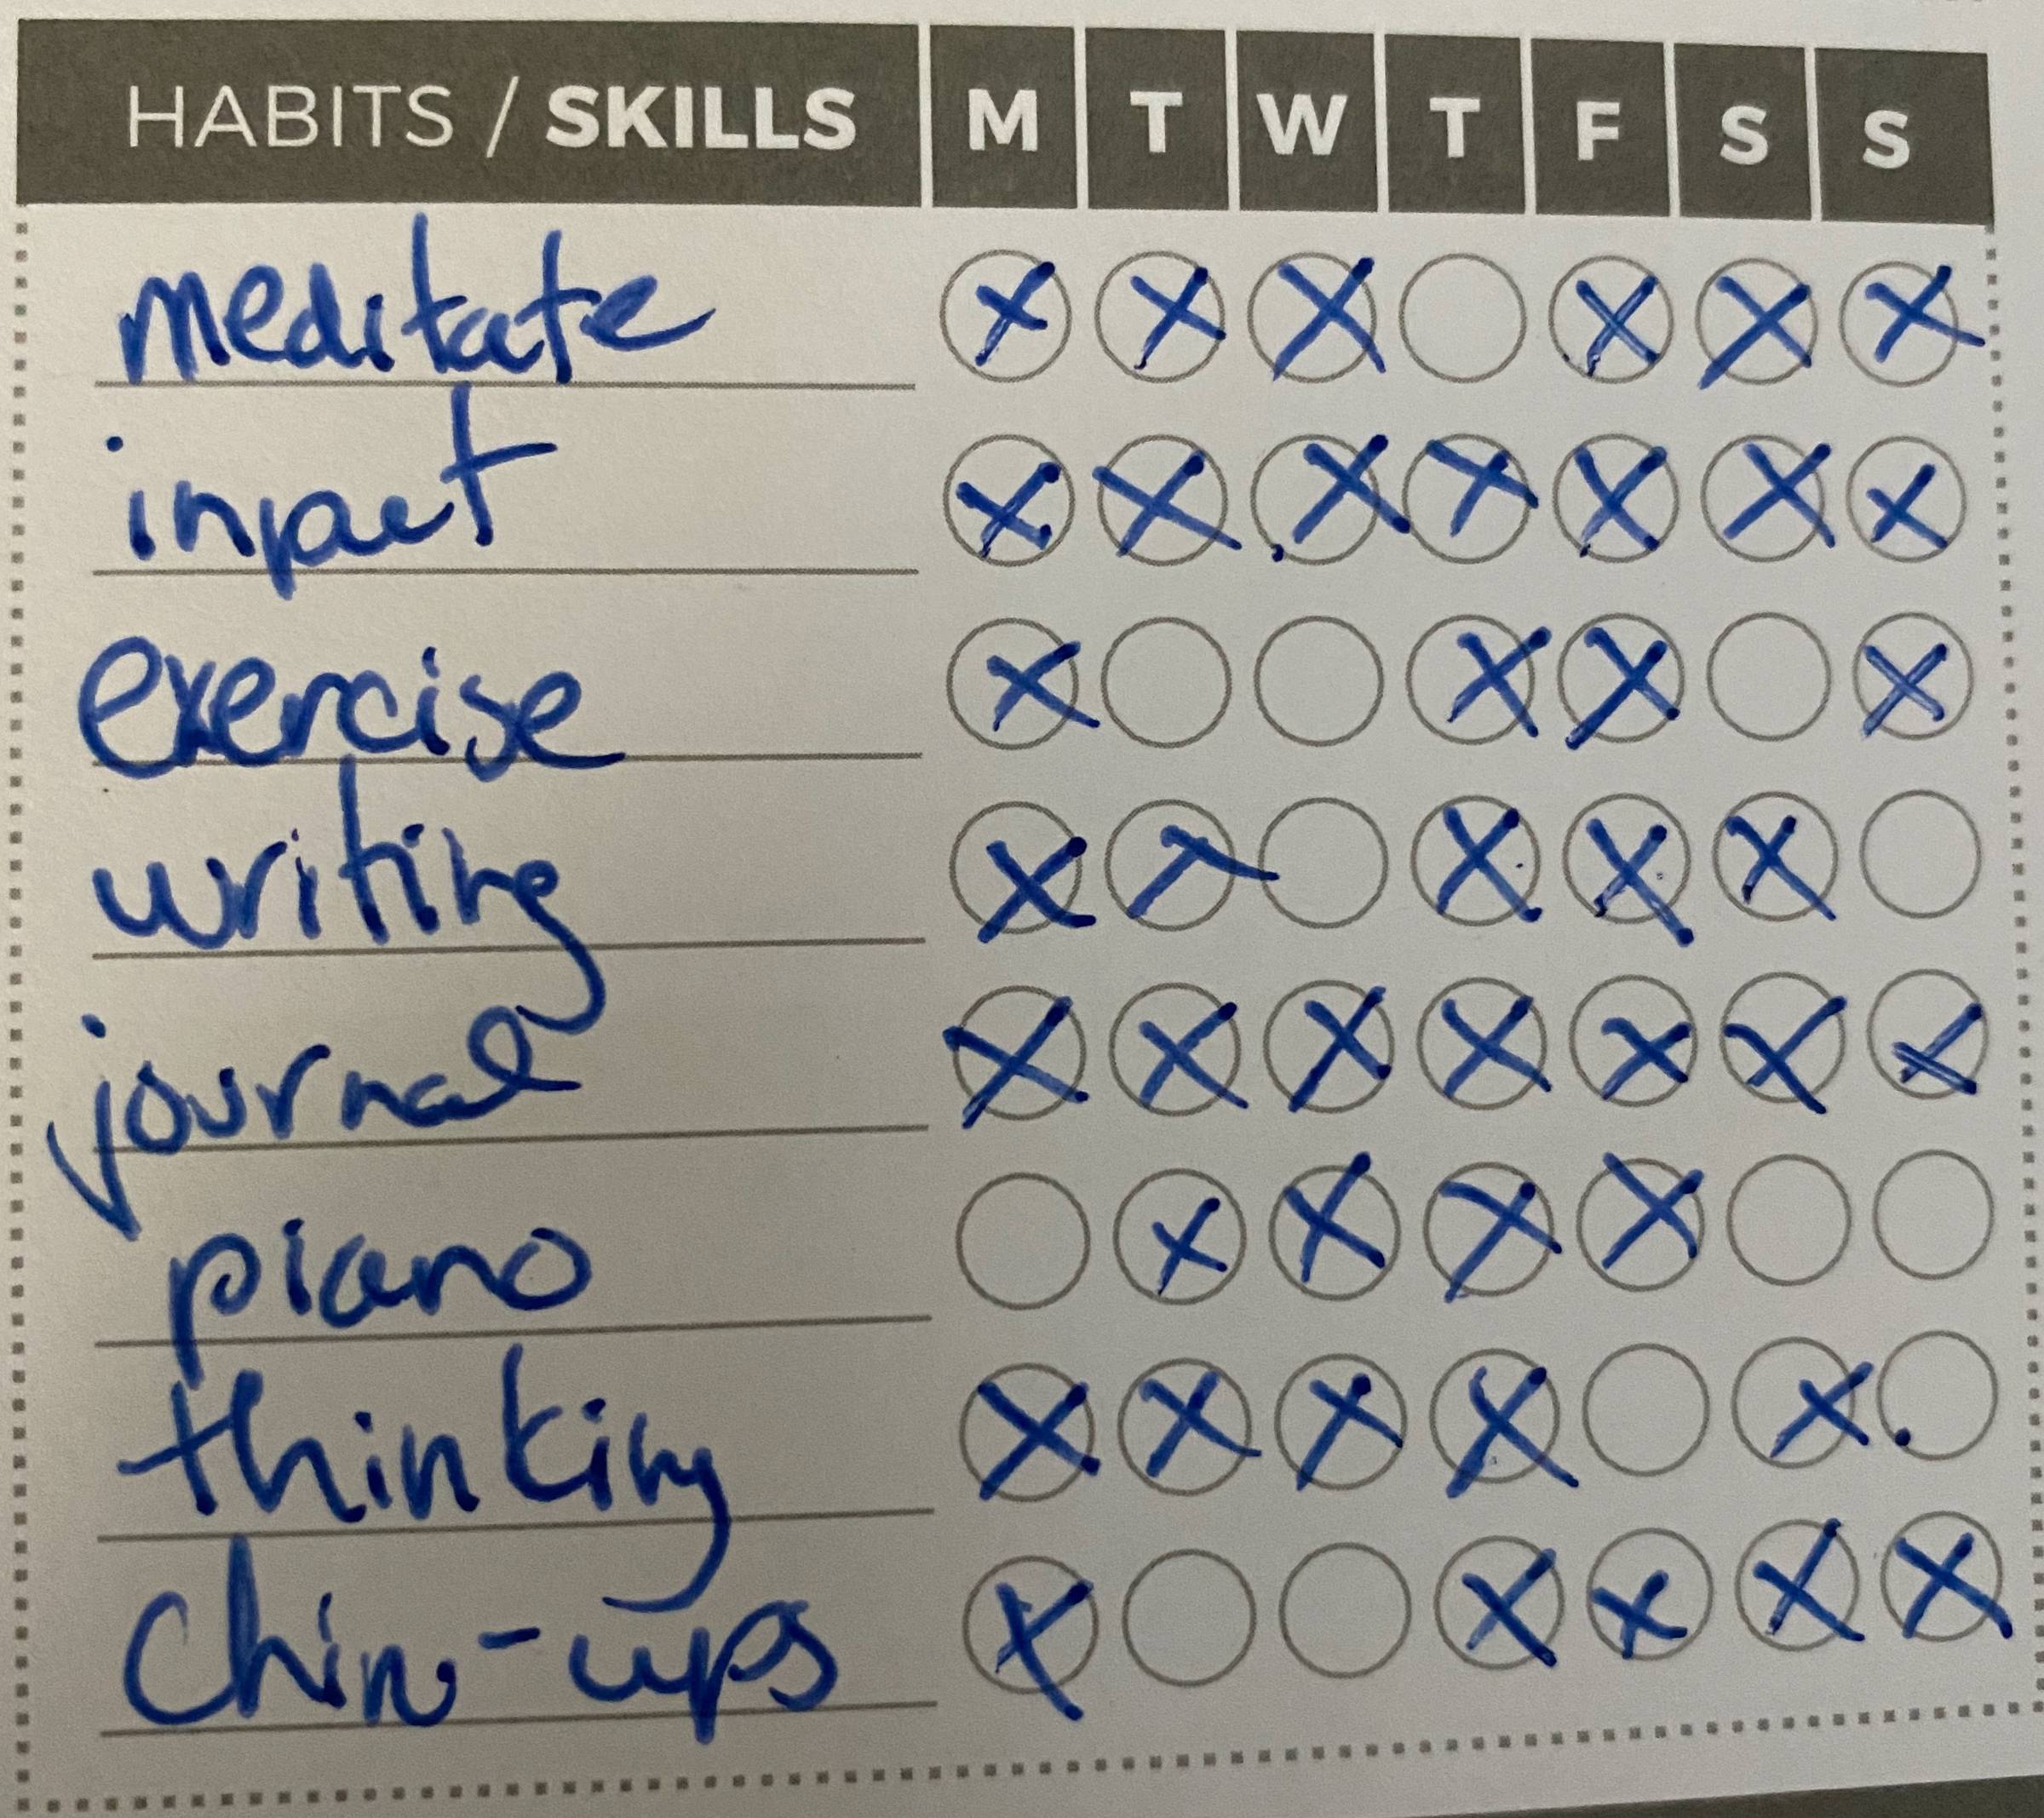 HABITS / SKILLS M T W T F S S
meditate
input
exercise
writing
journal
piano
thinking
chin-ups